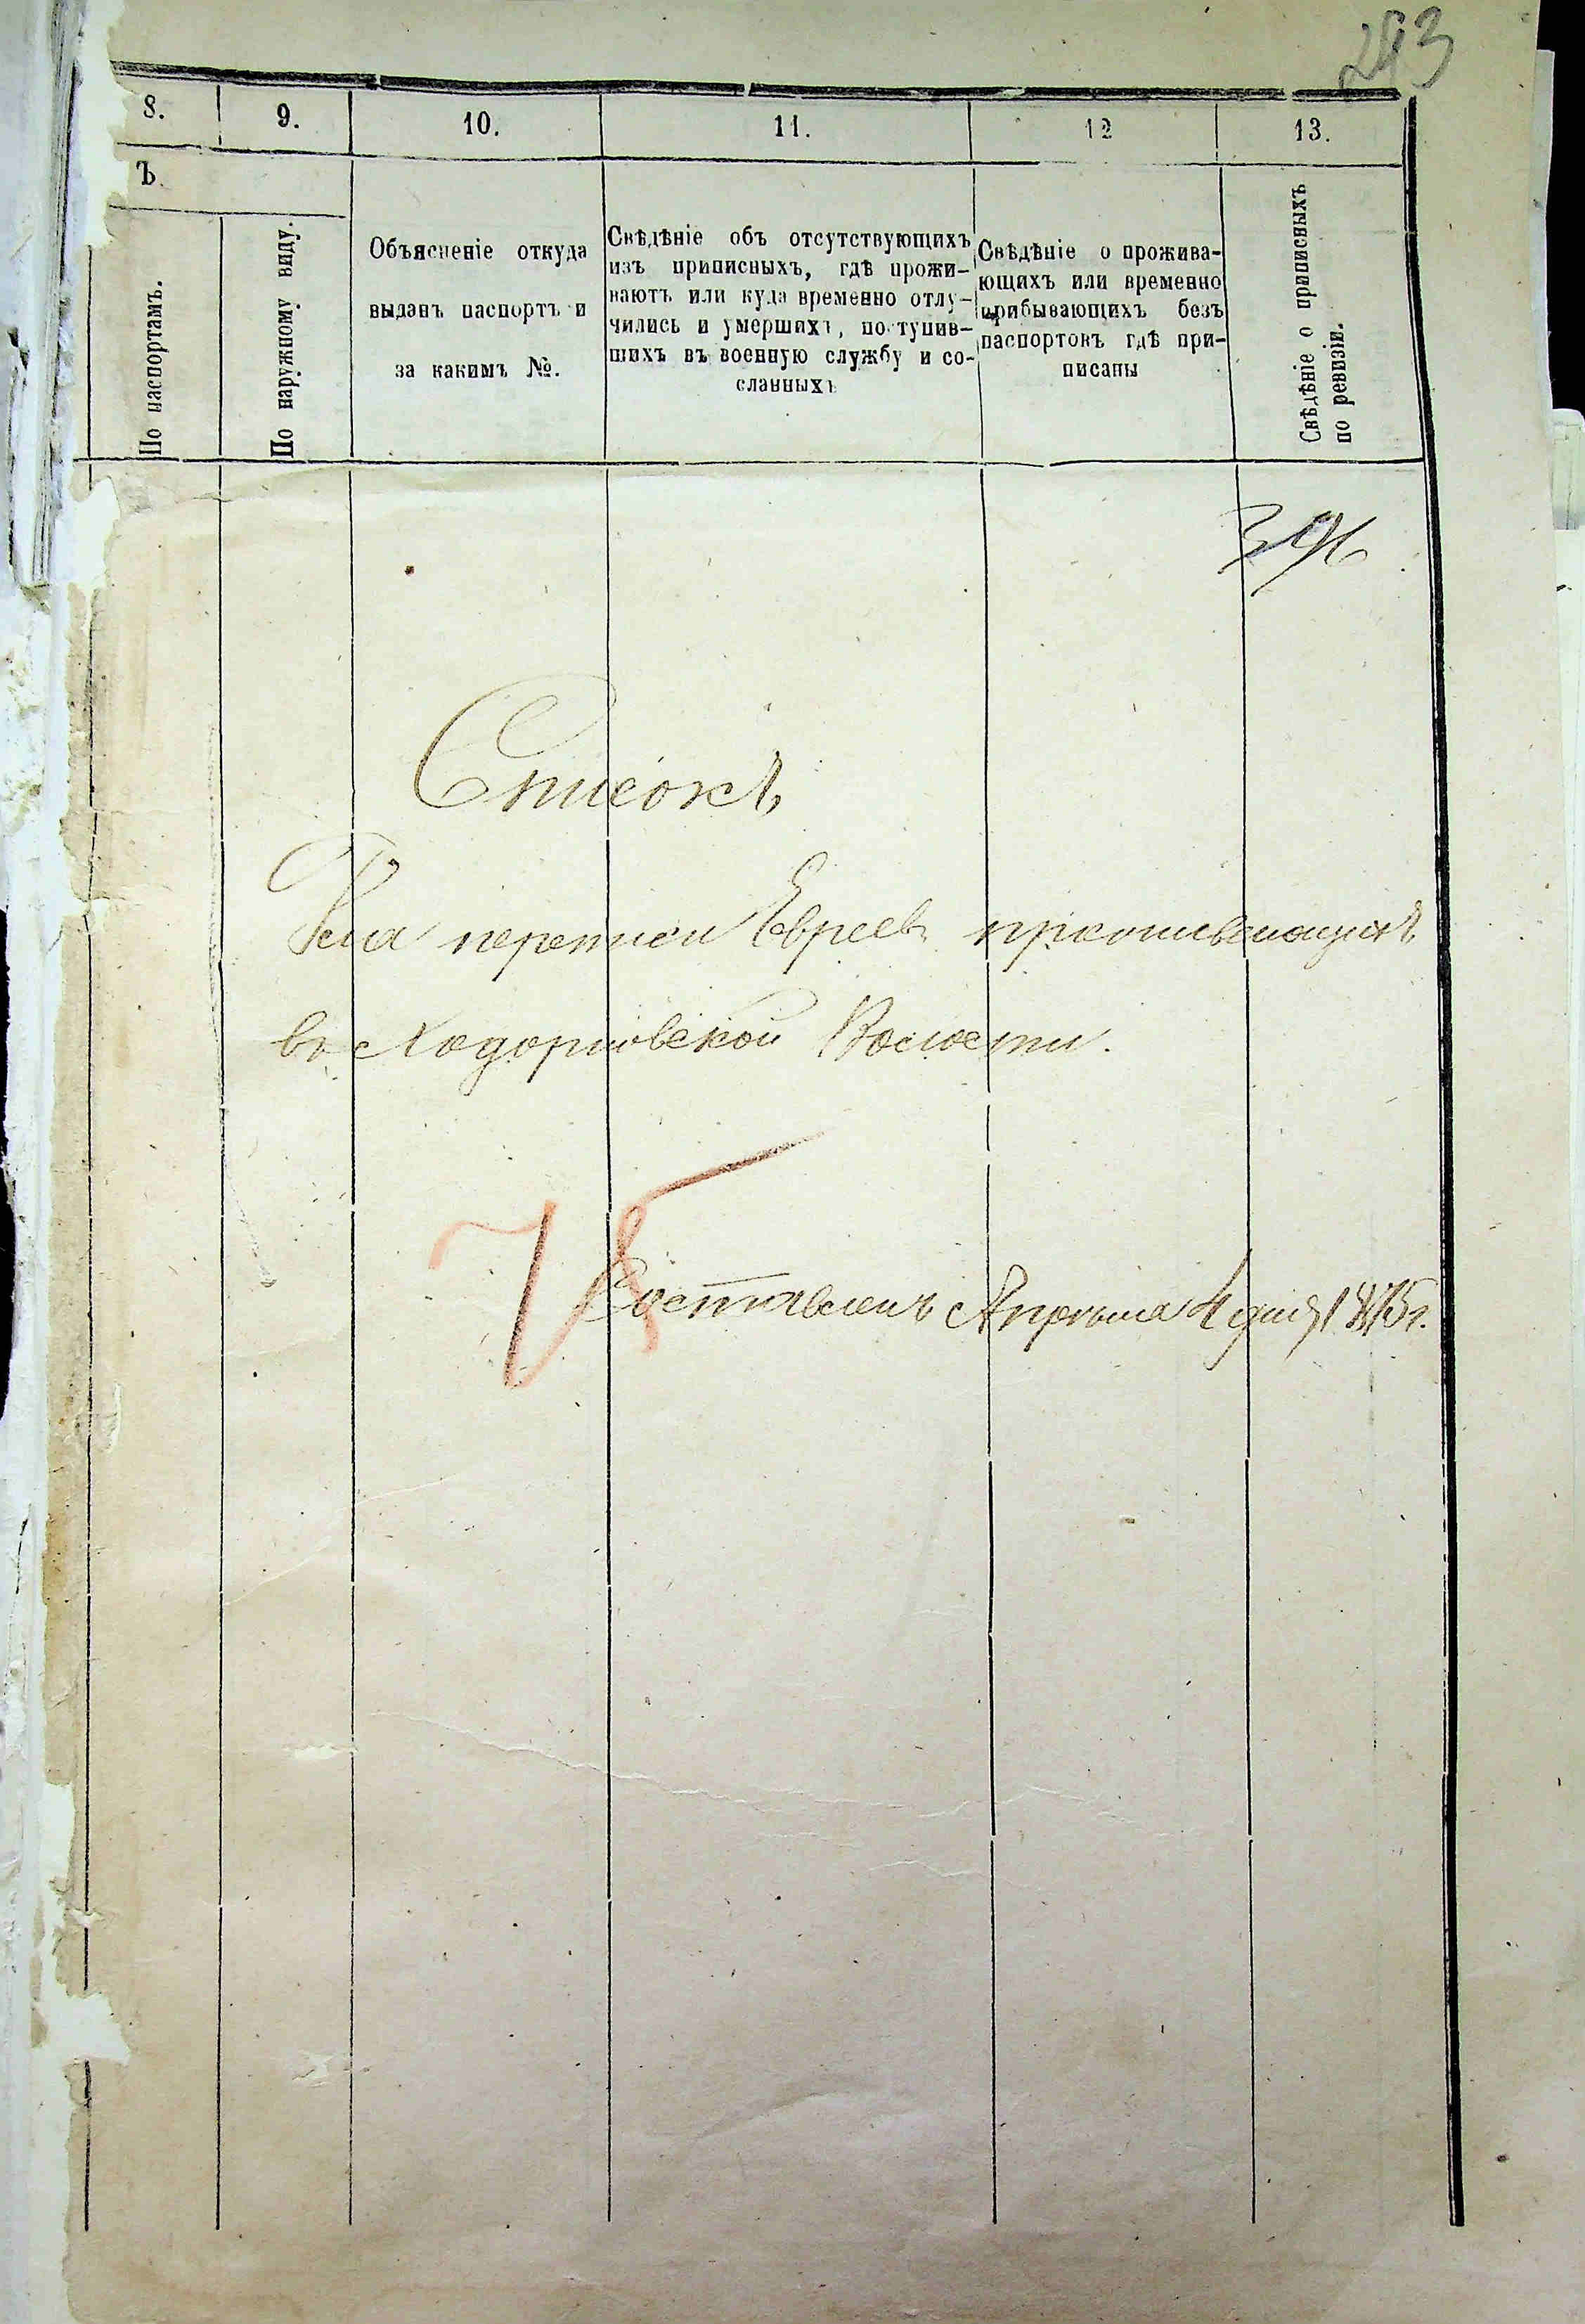 293
8. 9. 10. 11. 12 13.
Ъ.
По паспортамъ.
По наружному виду.
Объясненіе откуда
выданъ паспортъ и
за какимъ №.
Свѣдѣніе объ отсутствующихъ
изъ приписныхъ, гдѣ прожи-
ваютъ или куда временно отлу-
чились и умершихъ, поступив-
шихъ въ военную службу и со-
сланныхъ
Свѣдѣніе о прожива-
ющихъ или временно
прибывающихъ безъ
паспортовъ гдѣ при-
писаны
Свѣдѣніе о приписныхъ
по ревизіи.
Списокъ
Для переписи Евреевъ проживающихъ
въ Ходорковской Волости.
Составленъ Апрѣля 4 дня 1875 г.